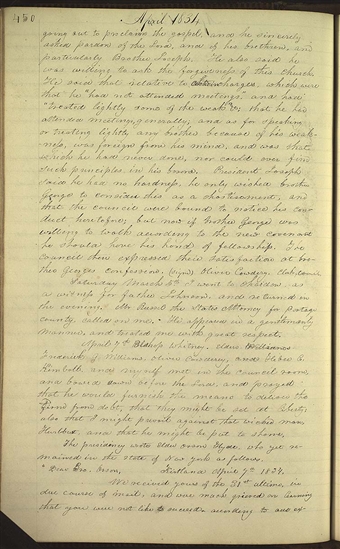 450
April 1834
going out to proclaim the gospel, and he sincerely
asked pardon of the Lord, and of his brethren, and
particularly brother Joseph. He also said he
was willing to ask the forgiveness of this church.
He said that relative to certain charges which were
that he had not attended meetings, and had
"treated lightly some of the weak" &c; that he had
attended meetings, generally; and as for speaking
or treating lightly any brother because of his weak-
ness, was foreign from his mind, and was that
which he had never done, nor could ever find
such principles in his breast. President Joseph
said he had no hardness, he only wished brother
George to consider this as a chastisement, and
that the council were bound to notice his con-
duct heretofore; but now if brother George was
willing to walk according to the new covenant
he should have his hand of fellowship. The
council then expressed their satisfaction at bro-
ther George's confession, Oliver Cowdery, Clerk
Saturday March I went to Chardon, as
a witness for father Johnson, and returned in
the evening. Mr the States Attorney for Portage
county called on me. He in a gentlemanly
manner, and treated me with great respect.
April 7th Bishop Whitney, Elders
Frederick G. Williams, Oliver Cowdery, and Heber C.
Kimball, and myself met in the council room
and bowed down before the Lord, and prayed
that he would furnish the means to deliver the
Firm from debt, that they might be set at liberty;
also that I might prevail against that wicked man,
Hurlbut, and that he might be put to shame.
The presidency wrote Elder Orson Hyde, who yet re-
mained in the state of New York as follows.
"Dear Bro. Orson, Kirtland April 7th 1834.
We received yours of the 31st ultimo, in
due course of mail, and were much grieved on learning
that you were not like to succeed according to our ex-